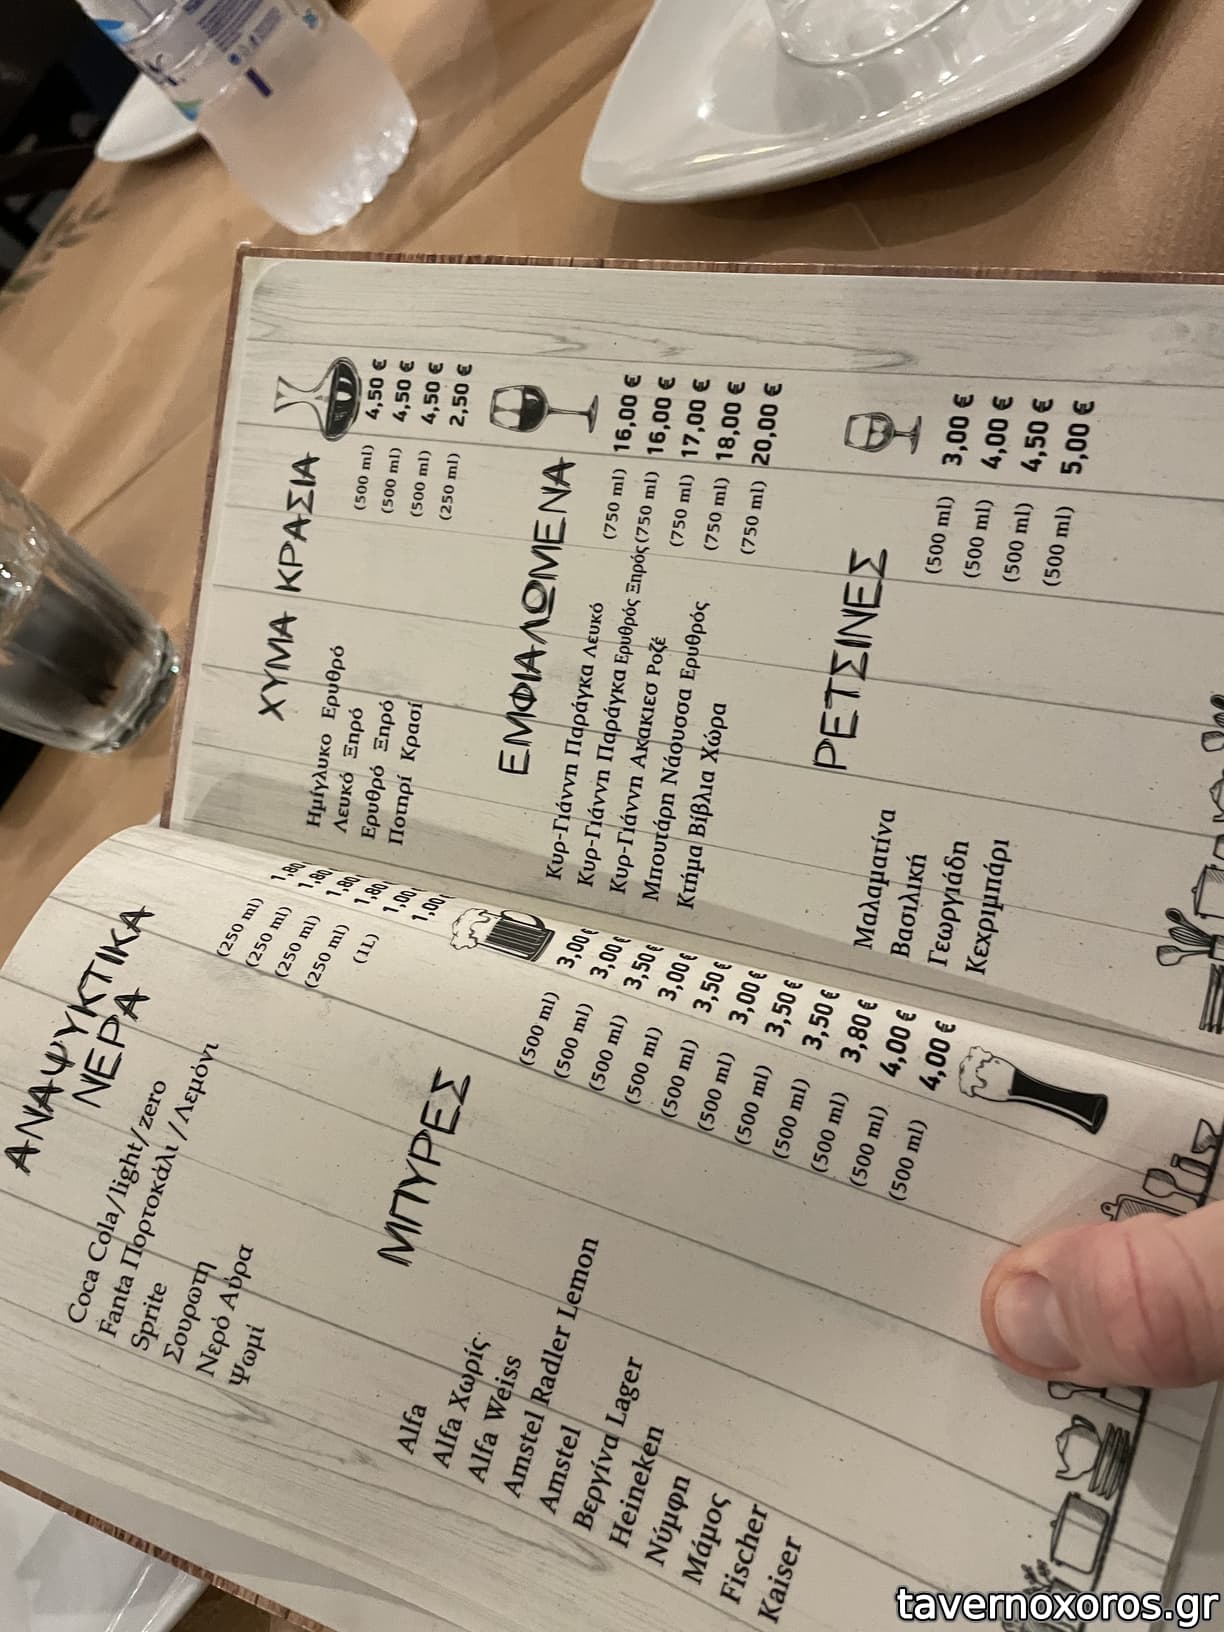 ΑΝΑΨΥΚΤΙΚΑ
ΝΕΡΑ
Coca Cola/light/zero (250 ml) 1,80
Fanta Πορτοκάλι //Λεμόνι (250 ml) 1,80
Sprite (250 ml) 1,80
Σουρωτή (250 ml) 1,80
Νερό Αύρα (1L) 1,00
Ψωμί 1,00
ΜΠΥΡΕΣ
Alfa (500 ml) 3,00€
Alfa Χωρίς (500 ml) 3,00€
Alfa Weiss (500 ml) 3,50€
Amstel Radler Lemon (500 ml) 3,00€
Amstel (500 ml) 3,50€
Βεργίνα Lager (500 ml) 3,00€
Heineken (500 ml) 3,50€
Νύμφη (500 ml) 3,50€
Μάμος (500 ml) 3,80€
Fischer (500 ml) 4,00€
Kaiser (500 ml) 4,00€
ΧΥΜΑ ΚΡΑΣΙΑ
Ημίγλυκο Ερυθρό (500 ml) 4,50 €
Λευκό Ξηρό (500 ml) 4,50 €
Ερυθρό Ξηρό (500 ml) 4,50 €
Ποτηρί Κρασί (250 ml) 2,50 €
ΕΜΦΙΑΛΩΜΕΝΑ
Κυρ-Γιάννη Παράγκα Λευκό (750 ml) 16,00 €
Κυρ-Γιάννη Παράγκα Ερυθρός Ξηρός (750 ml) 16,00 €
Κυρ-Γιάννη Ακακιεσ Ροζέ (750 ml) 17,00 €
Μπουτάρη Νάουσσα Ερυθρός (750 ml) 18,00 €
Κτήμα Βίβλια Χώρα (750 ml) 20,00 €
ΡΕΤΣΙΝΕΣ
Μαλαματίνα (500 ml) 3,00 €
Βασιλική (500 ml) 4,00 €
Γεωργιάδη (500 ml) 4,50 €
Κεχριμπάρι (500 ml) 5,00 €
tavernoxoros.gr